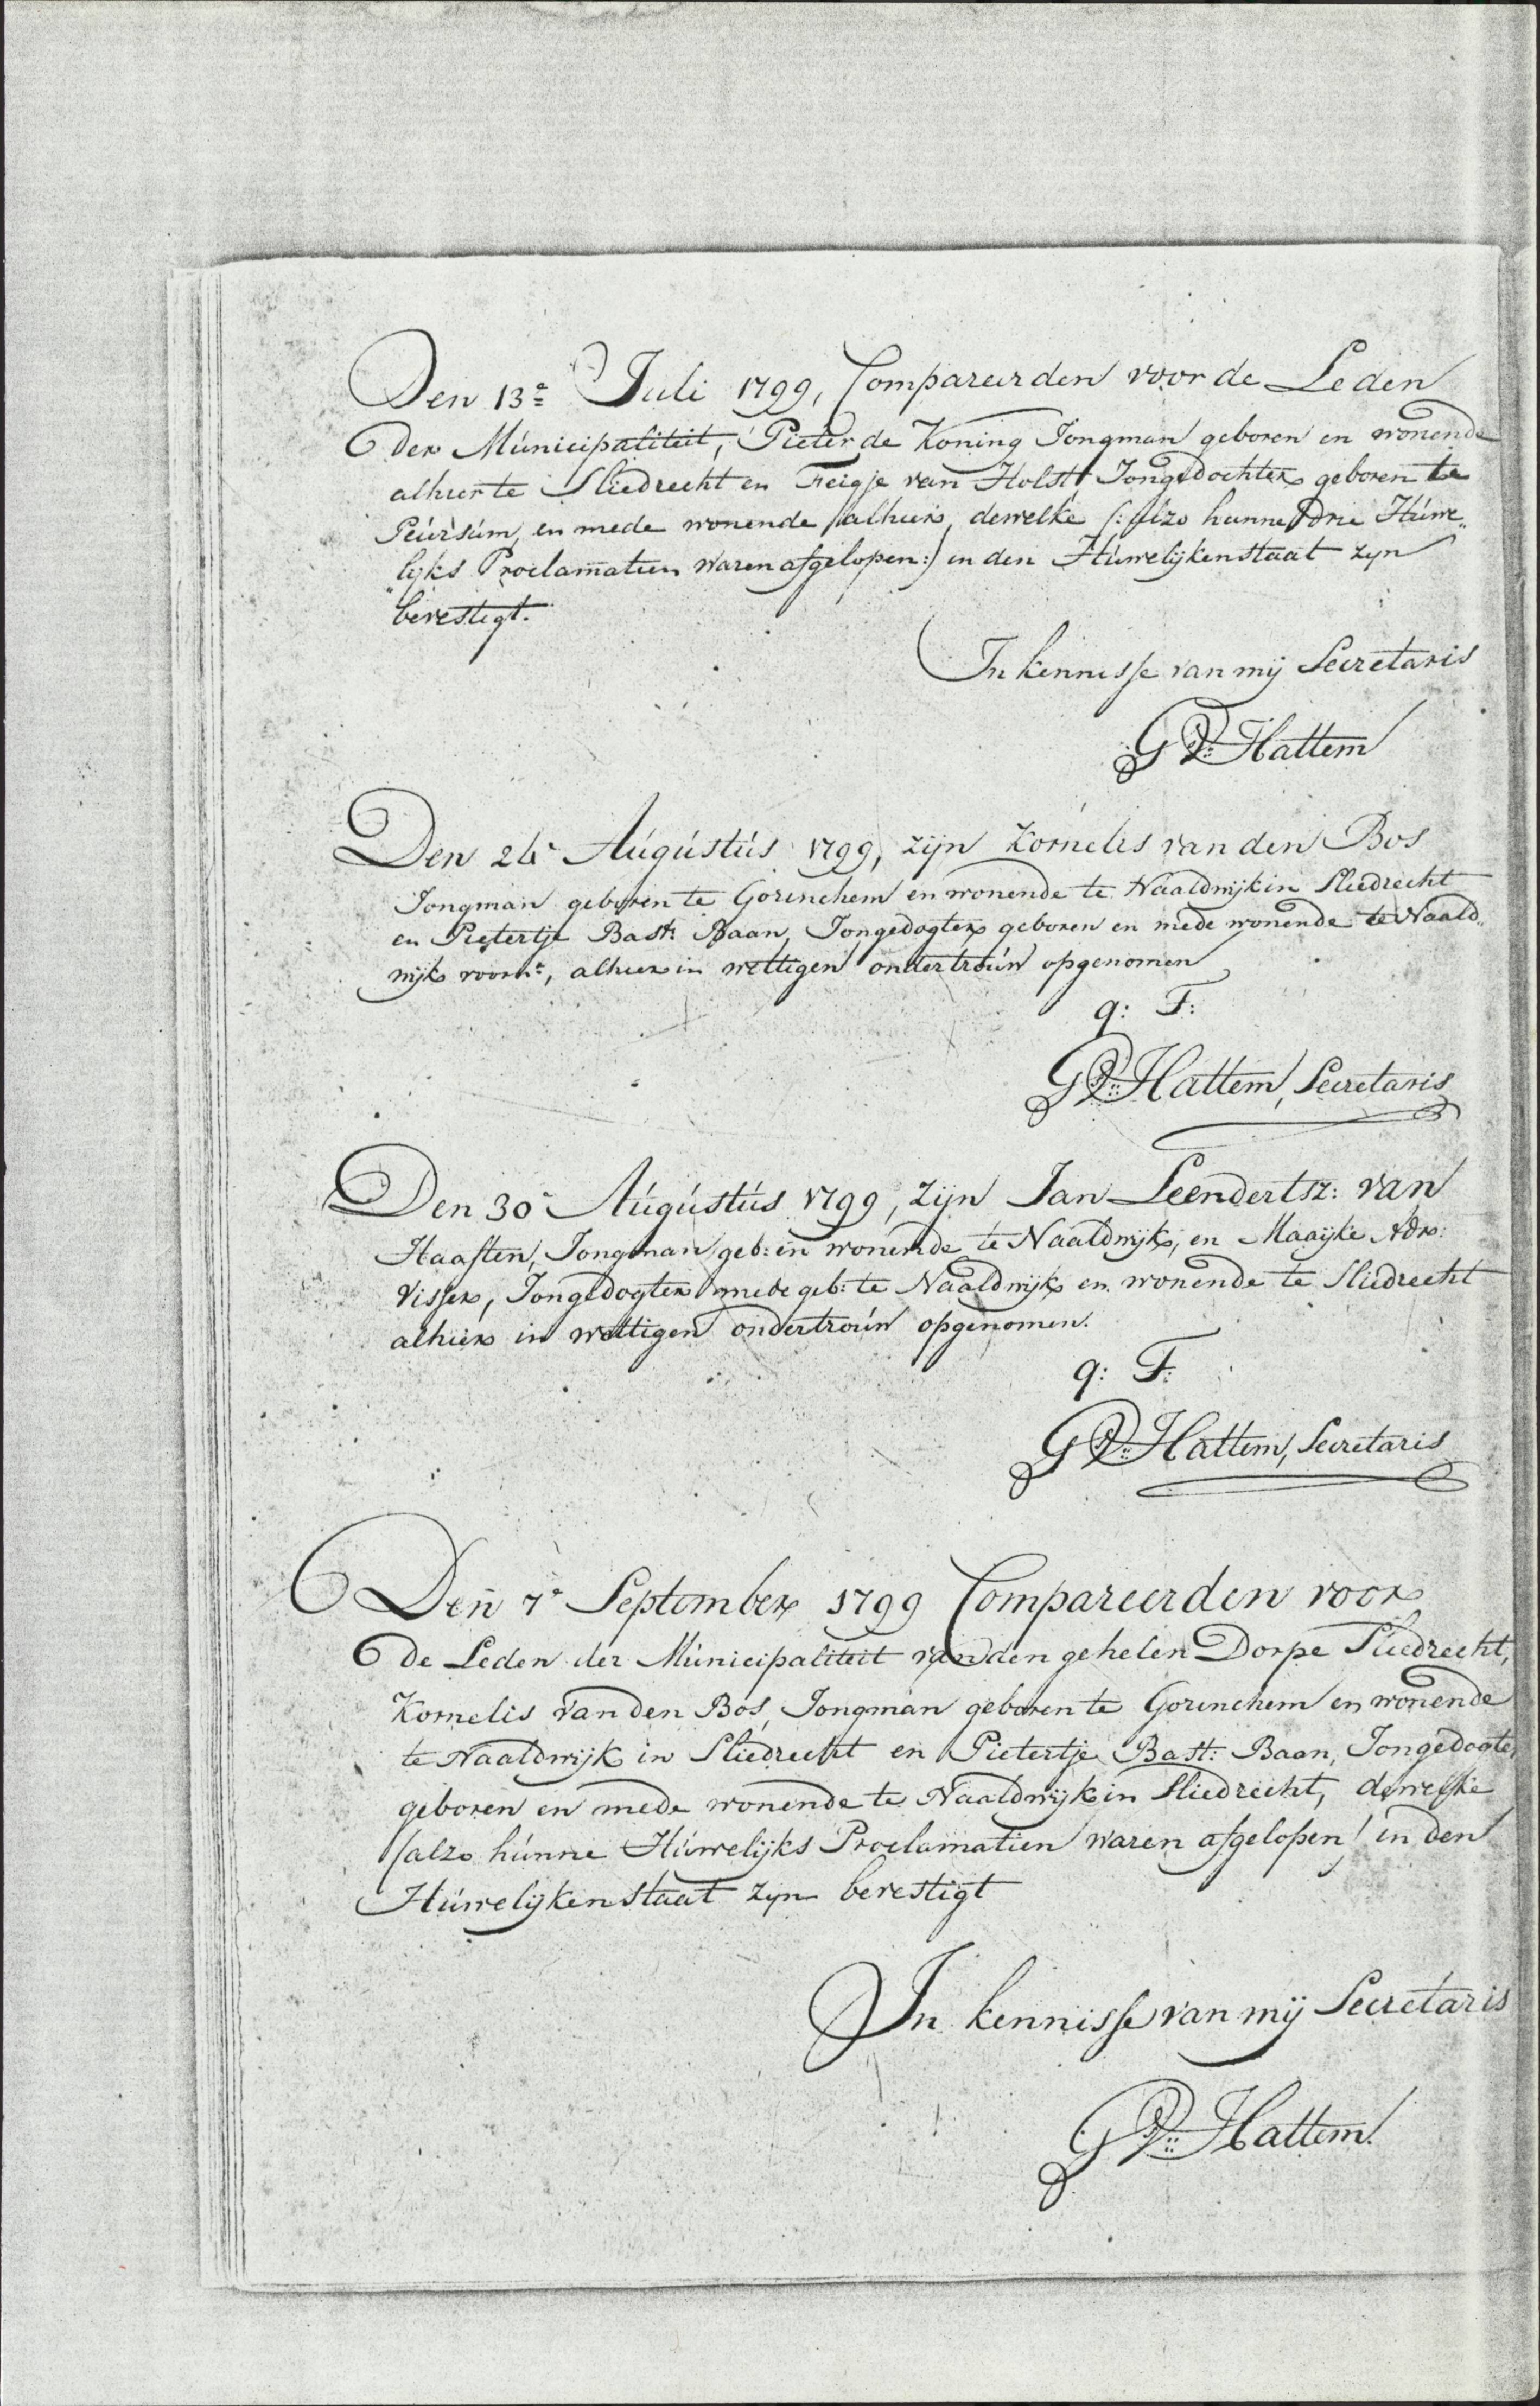 Den 13e Juli 1799, Compareerden voor de Leden
der Municipaliteit, Pieter de Koning Jongman geboren en wonende
alhier te Sliedrecht en Feigje van Holst Jongedochter geboren te
Peursum, en mede wonende alhier, dewelke (: alzo hunne drie Huwe„
„lijks Proclamatien waren afgelopen:) in den Huwelijken staat zyn
bevestigt.
In kennisse van mij Secretaris
G V: Hattem
Den 24e Augustus 1799, zijn Kornelis van den Bos
Jongman geboren te Gorinchem en wonende te Naaldwijk in Sliedrecht
en Pietertje Bast: Baan, Jongedogter geboren en mede wonende te Naald„
wijk voornt, alhier in wettigen ondertrouw opgenomen
q: F:
G V: Hattem, Secretaris
Den 30e Augustus 1799, zijn Jan Leendertsz: van
Haaften, Jongman geb: en wonende te Naaldwijk, en Maaijke Adr:
Visser, Jongedogter mede geb: te Naaldwijk en wonende te Sliedrecht
alhier in wettigen ondertrouw opgenomen.
q: F:
G V: Hattem, Secretaris
Den 7e September 1799 Compareerden voor
de Leden der Municipaliteit van den gehelen Dorpe Sliedrecht,
Kornelis van den Bos, Jongman geboren te Gorinchem en wonende
te Naaldwijk in Sliedrecht en Pietertje Bast: Baan, Jongedogter
geboren en mede wonende te Naaldwijk in Sliedrecht, dewelke
(alzo hunne Huwelijks Proclamatien waren afgelopen) in den
Huwelijken staat zyn bevestigt
In kennisse van mij Secretaris
G V: Hattem.